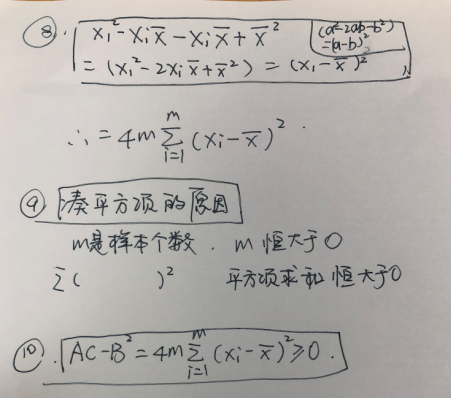 ⑧. x₁² - xᵢx̄ - xᵢx̄ + x̄² (a²-2ab-b²)
=(a-b)²
= (xᵢ² - 2xᵢx̄ + x̄²) = (x₁ - x̄)²
∴ = 4m∑ᵢ₌₁ᵐ (xᵢ - x̄)².
⑨ 凑平方项的原因
m是样本个数. m恒大于0
Σ( )² 平方项求和恒大于0
⑩. AC-B² = 4m∑ᵢ₌₁ᵐ (xᵢ - x̄)² ≥ 0.